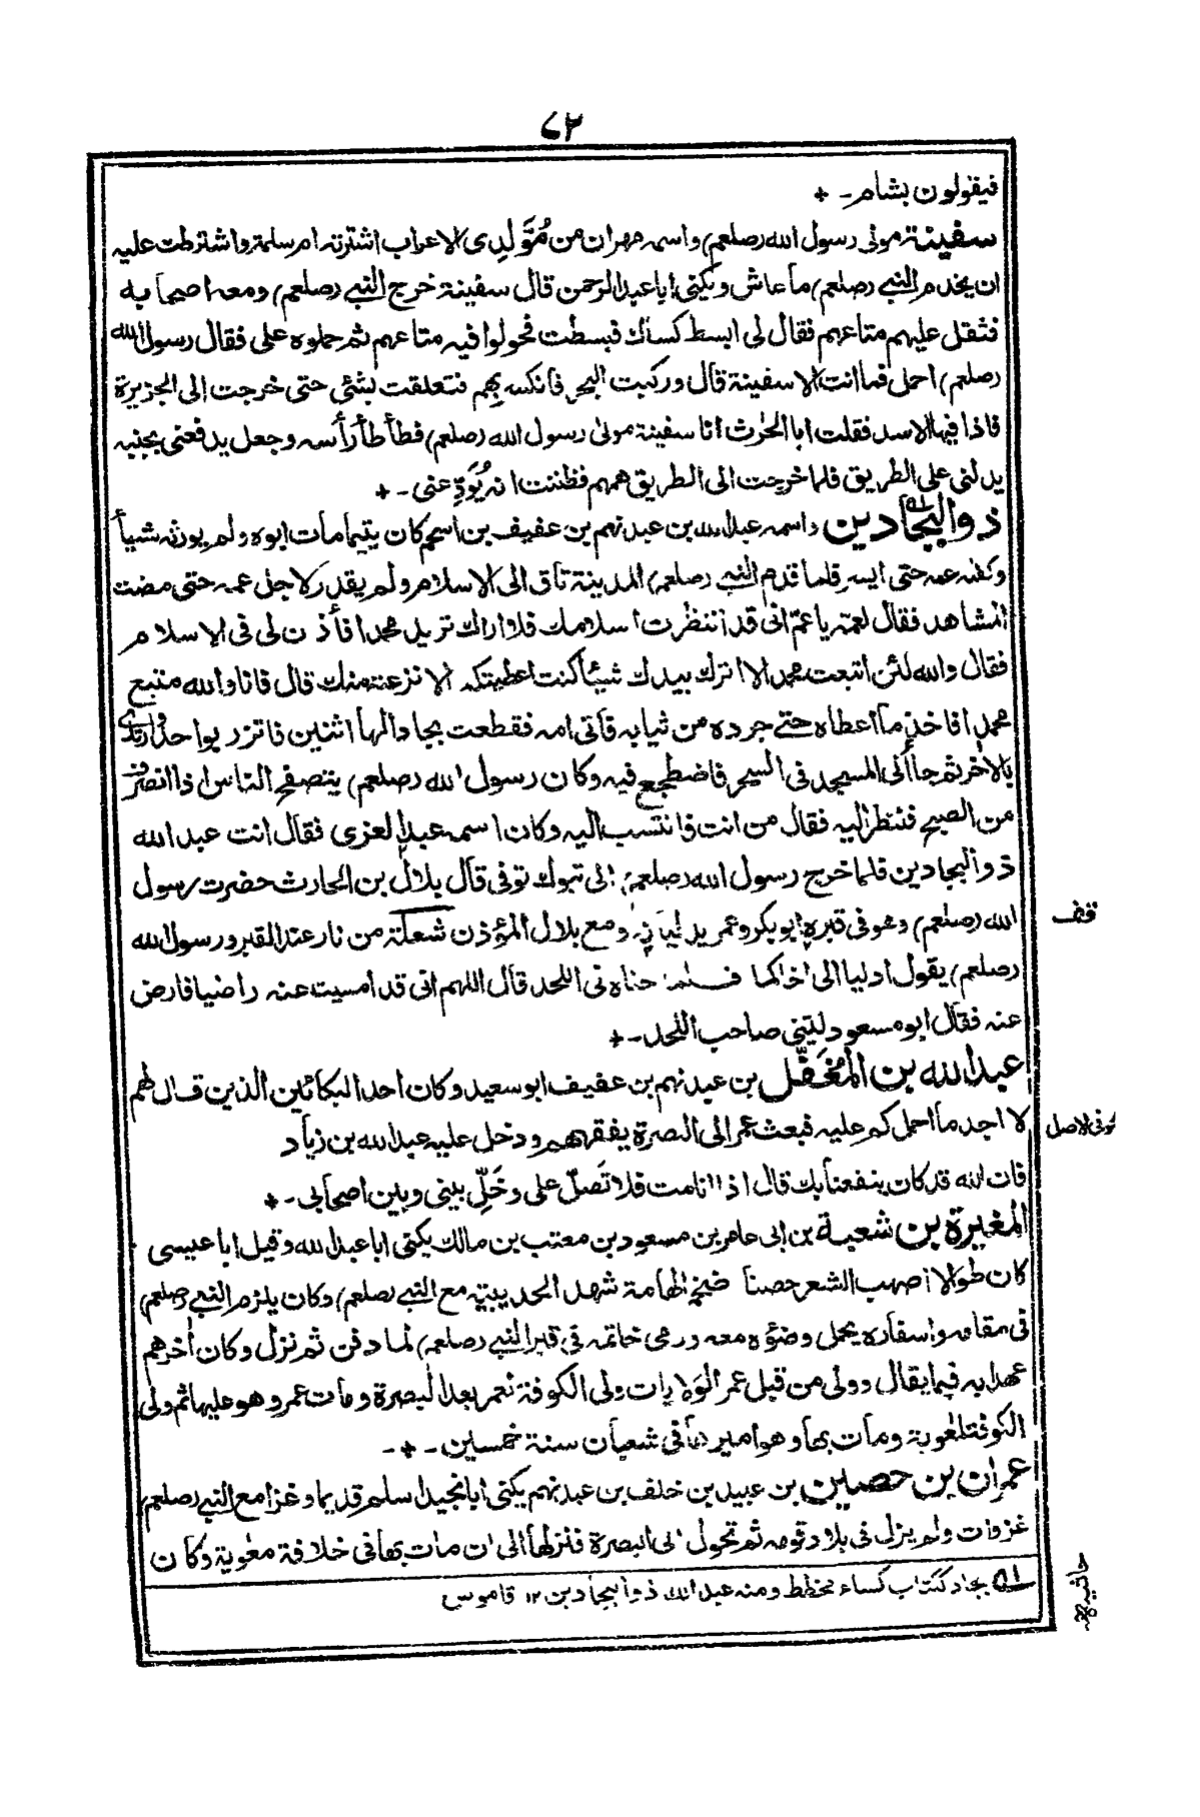 ٧٢
فيقولون بشام - *
سفينة مولى رسول الله (صلعم) واسمه مهران من مُوَلَّدِى الاعراب اشترته ام سلمة واشترطت عليه
ان يخدم النبى (صلعم) ما عاش ويكنى ابا عبد الرحمن قال سفينة خرج النبى (صلعم) ومعه اصحابه
فثقل عليهم متاعهم فقال لى ابسط كساك فبسطت فحولوا فيه متاعهم ثم حملوه على فقال رسول الله
(صلعم) احمل فما انت الا سفينة قال وركبت البحر فانكسر بهم فتعلقت بشئى حتى خرجت الى الجزيرة
فاذا فيها الاسد فقلت ابا الحٰرث انا سفينة مولى رسول الله (صلعم) فطأطأ رأسه وجعل يدفعنى بجنبه
يدلنى على الطريق فلما خرجت الى الطريق همهم فظننت انه يُوَدِّعنى - *
ذو البجادين واسمه عبد الله بن عبد نهم بن عفيف بن اسحم كان يتيما مات ابوه ولم يورثه شيأ
وكفله عمه حتى ايسر فلما قدم النبى (صلعم) المدينة تاق الى الاسلام ولم يقدر لاجل عمه حتى مضت
المشاهد فقال لعمه يا عمّ انى قد انتظرت اسلامك فلا اراك تريد محمدا فأذن لى فى الاسلام
فقال والله لئن اتبعت محمدا لا اترك بيدك شيئا كنت اعطيتكه الا نزعته منك قال فانا والله متبع
محمدا فاخذ ما اعطاه حتے جرده من ثيابه فأتى امه فقطعت بجادا لها اثنين فاتزر بواحد وارتدى
بالاخر ثم جا الى المسجد فى السحر فاضطجع فيه وكان رسول الله (صلعم) يتصفح الناس اذا انصرف
من الصبح فنظر اليه فقال من انت فانتسب اليه وكان اسمه عبد العزى فقال انت عبد الله
ذو البجادين فلما خرج رسول الله (صلعم) الى تبوك توفى قال بلال بن الحارث حضرت رسول
الله (صلعم) وهو فى قبره ابو بكر وعمر يدليانه ومع بلال المؤذن شعلة من نار عند القبر ورسول الله
(صلعم) يقول ادليا الى اخاكما فلما هناه فى اللحد قال اللهم انى قد امسيت عنه راضيا فارض
عنه فقال ابو مسعود ليتنى صاحب اللحد - *
عبد الله بن المُغَفَّل بن عبد نهم بن عفيف ابو سعيد وكان احد البكائين الذين قال لهم
لا اجد ما احملكم عليه فبعث عمر الى البصرة يفقههم ودخل عليه عبد الله بن زياد
فان الله قد كان ينفعنا بك قال اذا انا مت فلا تَصَلّ على وخَلِّ بينى وبين اصحابى - *
المغيرة بن شعبة بن ابى عامر بن مسعود بن معتب بن مالك يكنى ابا عبد الله وقيل ابا عيسى
كان طوالا اصهب الشعر حصنا ضخم الهامة شهد الحديبية مع النبى (صلعم) وكان يلزم النبى (صلعم)
فى مقامه واسفاره يحمل وضوءه معه ورمى خاتمه فى قبر النبى (صلعم) لما دفن ثم نزل وكان اٰخرهم
عهدا به فيما يقال وولى من قبل عمر الولايات ولى الكوفة لعمر بعد البصرة ومات عمر وهو عليها ثم ولى
الكوفة لمعوية ومات بها وهو اميرها فى شعبان سنة خمسين - * -
عمران بن حصين بن عبيد بن خلف بن عبد نهم يكنى ابا نجيد اسلم قديما وغزا مع النبى (صلعم)
غزوات ولم يزل فى بلاد قومه ثم تحول الى البصرة فنزلها الى ان مات بها فى خلافة معٰوية وكان
قف
كوفى الاصل
بجاد ككتاب كساء مخطط ومنه عبد الله ذو البجادين ١٢ قاموس